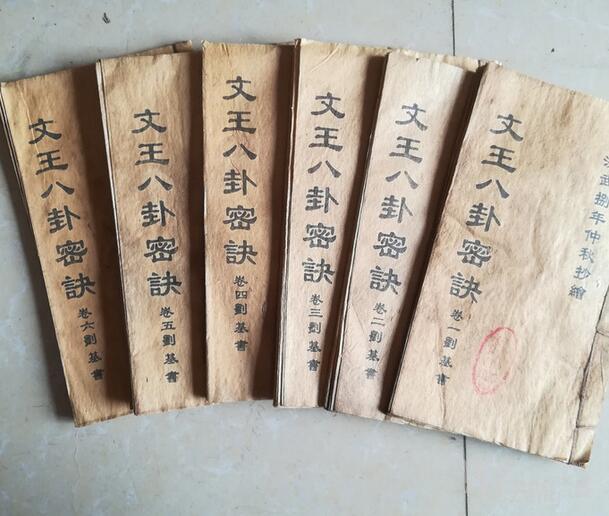 洪武捌年仲秋抄繪
文王八卦密訣
卷一劉基書
文王八卦密訣
卷二劉基書
文王八卦密訣
卷三劉基書
文王八卦密訣
卷四劉基書
文王八卦密訣
卷五劉基書
文王八卦密訣
卷六劉基書